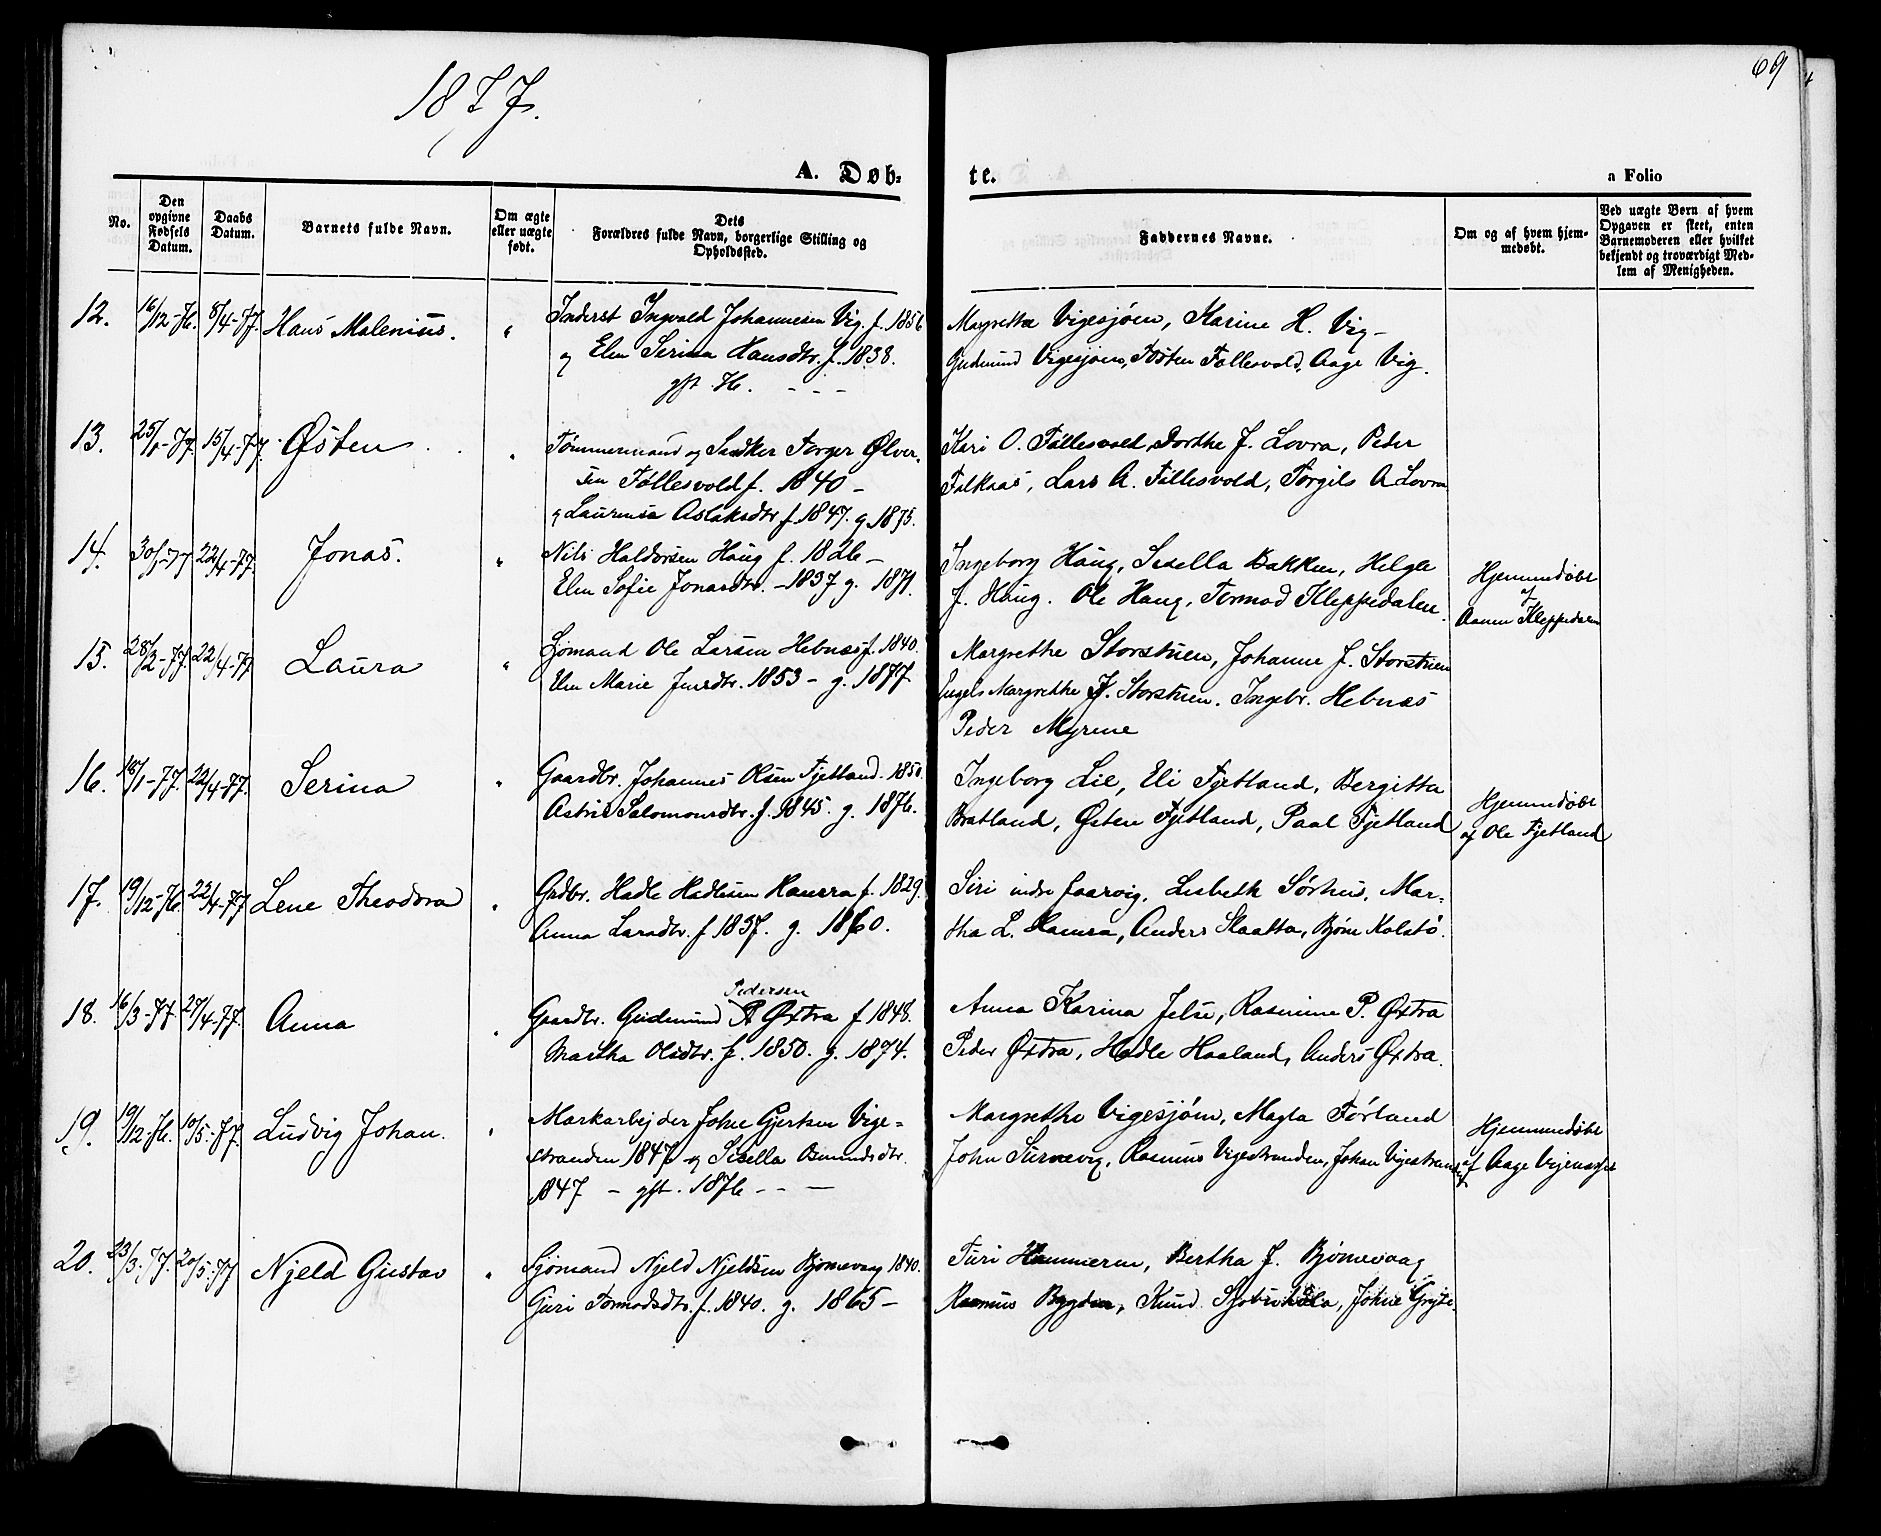 1877.
69
A. Døb-
te.
a Folio
No.
Den opgivne Fødsels Datum.
Daabs Datum.
Barnets fulde Navn.
Om ægte eller uægte født.
Dets Forældres fulde Navn, borgerlige Stilling og Opholdssted.
Faddernes Navne.
Om og af hvem hjemmedøbt.
Ved uægte Børn af hvem Opgaven er skeet, enten Barnemoderen eller hvilket bekjendt og troværdigt Medlem af Menigheden.
12. 16/12-76. 8/4-77. Hans Malenius. "
Inderst Ingvald Johannesen Vig. f. 1856
og Elen Serina Hansdtr. f. 1838.
gft. 76. - - -
Margrethe Vigesjøen, Karine H. Vig-
Gudmund Vigesjøen, Østen Føllesvold, Aage Vig.
13. 25/1-77. 15/4-77. Østen "
Tømmermand og Snedker Torger Ølver-
sen Føllesvold f. 1840 -
og Laurensa Aslaksdtr f 1847. g 1875.
Kari O. Føllesvold, Dorthe J. Lovra, Peder
Falkaas, Lars A. Føllesvold, Torgils A Lovra
14. 30/1-77 22/4-77. Jonas. "
Nils Haldorsen Haug f. 1826 -
Elen Sofie Jonasdtr. - 1837 g. 1871.
Ingeborg Haug, Sesella Bakken, Helge
J. Haug. Ole Haug, Tormod Kleppedalen.
Hjemmedøbt
af
Aanen Kleppedalen
15. 28/2-77. 22/4-77 Laura "
Sjømand Ole Larsen Hebnes f. 1840.
Elen Marie Jensdtr. 1853 - g. 1877
Margrethe Storstuen, Johanne J. Storstuen
Engels Margrethe J. Storstuen. Ingebr. Hebnes
Peder Myrene
16. 18/1-77. 22/4-77. Serina "
Gaardbr. Johannes Olsen Fjetland. 1850.
Astri Salomonsdtr. f. 1845. g. 1876.
Ingeborg Lie, Eli Fjetland, Bergitta
Bratland, Østen Fjetland, Paal Fjetland
Hjemmedøbt
af Ole Fjetland
17. 19/12-76. 22/4-77 Lene Theodora "
Grdbr. Hadle Hadlesen Hamra f. 1829.
Anna Larsdtr. f 1837. g. 1860.
Siri indre Saarvig, Lisbeth Sørhus, Mar-
tha L. Hamra, Anders Slaatta, Bjørn Kalstø.
18. 16/3-77. 27/4-77. Anna "
Pedersen
Gaardbr. Gudmund P Øxtra f 1848.
Martha Olsdtr. f. 1850. g. 1874.
Anna Karina Jelse, Rasmine P. Øxtra
Peder Øxtra, Hadle Haaland, Anders Øxtra.
19. 19/12-76. 10/5-77. Ludvig Johan. "
Markarbejder John Gjertsen Vige-
stranden 1847 og Sisella
1847 - gft. 1876 - - -
Margrethe Vigesjøen, Magla Førland
John Rasmus Vigestranden, Johan Vigestranden
Hjemmedøbt
af Aage
20. 23/3-77. 20/5-77 Njeld Gustav "
Sjömand Njeld Njeldsen Bjønevaag 1840.
Guri Tormodsdtr. f. 1840. g. 1865 -
Turi Hammeren, Bertha J. Bjønevaag
Rasmus Bygden, Knud